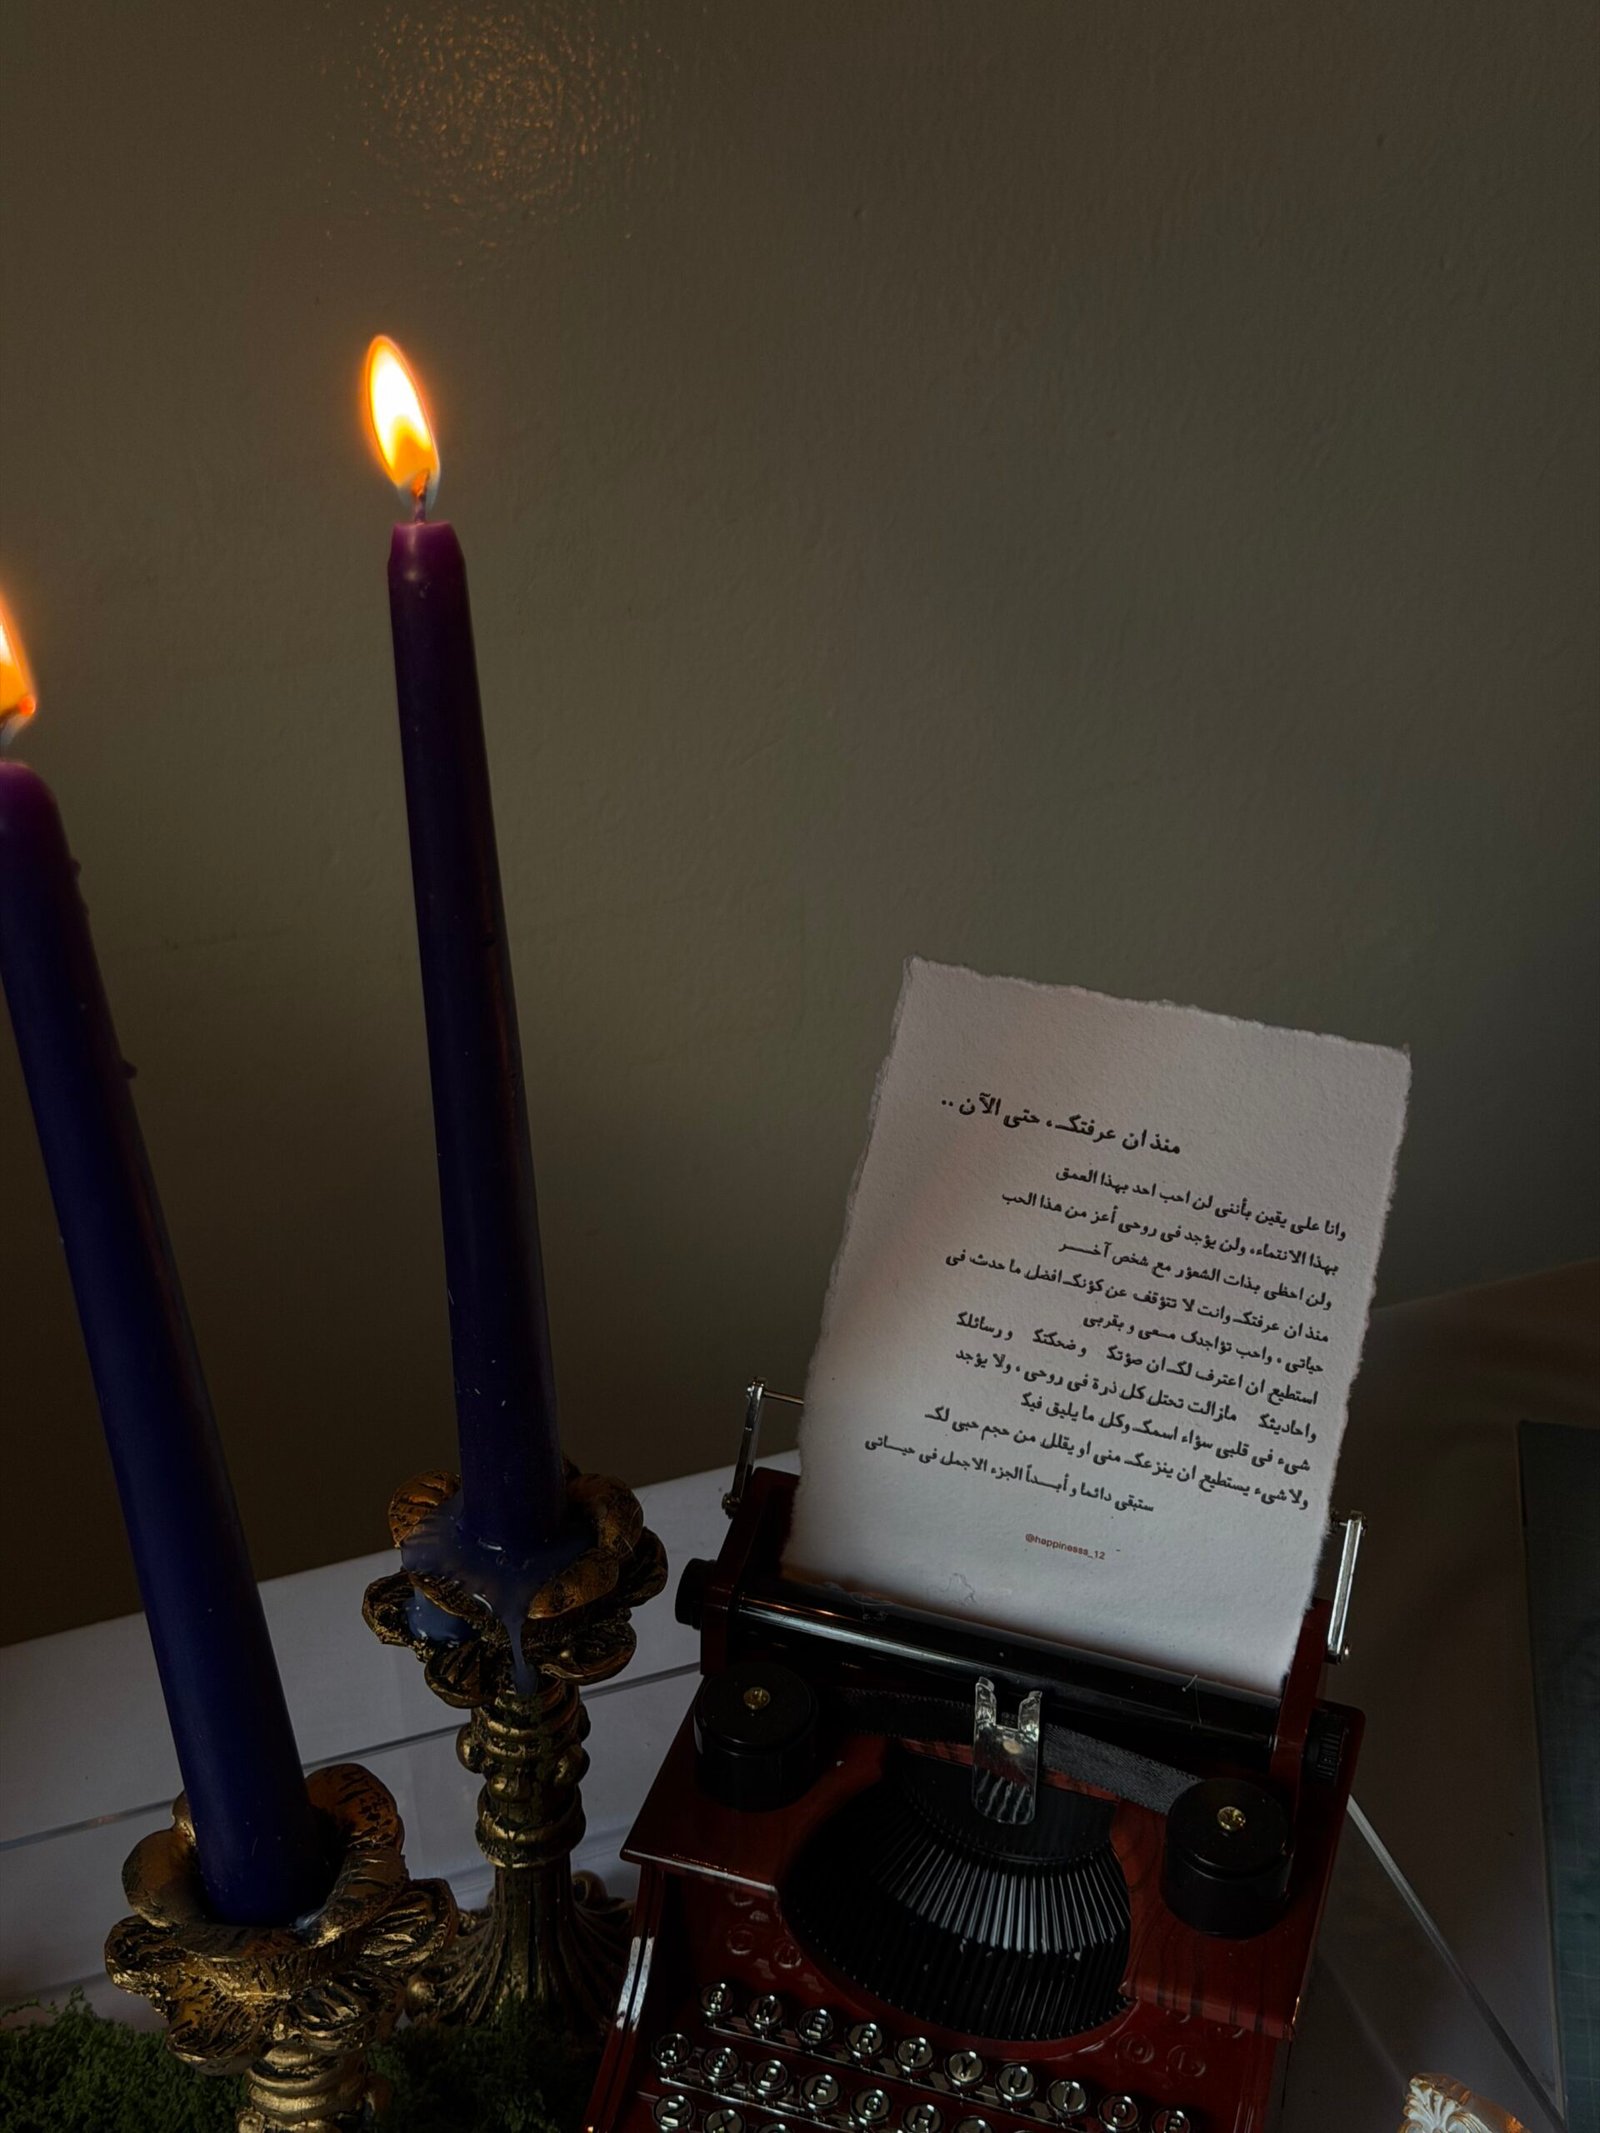 منذ ان عرفتك ، حتى الآن ..
وانا على يقين بأننى لن احب احد بهذا العمق
بهذا الانتماء، ولن يؤجد فى روحى أعز من هذا الحب
ولن احظى بذات الشعؤر مع شخص آخـــر
منذ ان عرفتك وانت لا تتؤقف عن كؤنك افضل ما حدث فى
حياتى ، واحب تؤاجدك مـعى و بقربى
استطيع ان اعترف لك ان صؤتك و ضحكتك و رسائلك
واحاديثك مازالت تحتل كل ذرة فى روحى ، ولا يؤجد
شىء فى قلبى سؤاء اسمك وكل ما يليق فيك
ولا شىء يستطيع ان ينزعك منى او يقلل من حجم حبى لك
ستبقى دائما و أبـــداً الجزء الاجمل فى حيـــاتى
@happinesss_12
Q W E R T Y U I O P
A S D F G H
Z X